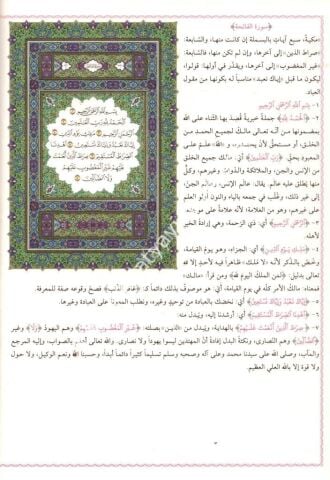 ﴿سورة الفاتحة﴾
«مكية، سبع آيات بالبسملة إن كانت منها، والسابعة:
صراط الذين» إلى آخرها، وإن لم تكن منها، فالسابعة:
«غير المغضوب» إلى آخرها، ويقدَّر في أولها: قولوا؛
ليكون ما قبل ﴿إياك نعبد﴾ مناسباً له بكونها من مقول
العباد.
١ - بِسْمِ ٱللَّهِ ٱلرَّحْمَٰنِ ٱلرَّحِيمِ
٢ - ﴿ٱلْحَمْدُ لِلَّهِ﴾ جملة خبرية قُصد بها الثناء على الله
بمضمونها من أنه تعالى مالك لجميع الحمد من
الخلق، أو مستحق لأن يحمدوه، و«الله» علم على
المعبود بحق. ﴿رَبِّ ٱلْعَٰلَمِينَ﴾ أي: مالك جميع الخلق
من الإنس والجن، والملائكة والدواب وغيرهم، وكلٌّ
منها يطلق عليه عالم. يقال: عالم الإنس، وعالم الجن،
إلى غير ذلك، وغُلِّب في جمعه بالياء والنون أولو العلم
على غيرهم، وهو من العلامة؛ لأنه علامة على موجِده.
٣ - ﴿ٱلرَّحْمَٰنِ ٱلرَّحِيمِ﴾ أي: ذي الرحمة، وهي إرادة الخير
لأهله.
٤ - ﴿مَٰلِكِ يَوْمِ ٱلدِّينِ﴾ أي: الجزاء، وهو يوم القيامة،
وخُصَّ بالذكر لأنه لا ملك ظاهراً فيه لأحد إلا لله
تعالى بدليل: «لمن الملك اليوم لله» ومن قرأ: «مالك»
فمعناه: مالك الأمر كله في يوم القيامة، أي: هو موصوف بذلك دائماً كـ: «غافر الذنب» فصح وقوعه صفة للمعرفة.
٥ - ﴿إِيَّاكَ نَعْبُدُ وَإِيَّاكَ نَسْتَعِينُ﴾ أي: نخصك بالعبادة من توحيد وغيره، ونطلب المعونة على العبادة وغيرها.
٦ - ﴿ٱهْدِنَا ٱلصِّرَٰطَ ٱلْمُسْتَقِيمَ﴾ أي: أرشدنا إليه، ويُبدل منه:
٧ - ﴿صِرَٰطَ ٱلَّذِينَ أَنْعَمْتَ عَلَيْهِمْ﴾ بالهداية، ويُبدل من «الذين» بصلته: ﴿غَيْرِ ٱلْمَغْضُوبِ عَلَيْهِمْ﴾ وهم اليهود ﴿وَلَا﴾ وغير
﴿ٱلضَّآلِّينَ﴾ وهم النصارى، ونكتة البدل إفادة أنَّ المهتدين ليسوا يهوداً ولا نصارى. والله تعالى أعلم بالصواب، وإليه المرجع
والمآب، وصلى الله على سيدنا محمد وعلى آله وصحبه وسلم تسليماً كثيراً دائماً أبداً، وحسبنا الله ونعم الوكيل، ولا حول
ولا قوة إلا بالله العلي العظيم.
بِسْمِ ٱللَّهِ ٱلرَّحْمَٰنِ ٱلرَّحِيمِ
ٱلْحَمْدُ لِلَّهِ رَبِّ ٱلْعَٰلَمِينَ
ٱلرَّحْمَٰنِ ٱلرَّحِيمِ مَٰلِكِ يَوْمِ ٱلدِّينِ
إِيَّاكَ نَعْبُدُ وَإِيَّاكَ نَسْتَعِينُ ٱهْدِنَا
ٱلصِّرَٰطَ ٱلْمُسْتَقِيمَ صِرَٰطَ ٱلَّذِينَ أَنْعَمْتَ
عَلَيْهِمْ غَيْرِ ٱلْمَغْضُوبِ عَلَيْهِمْ
وَلَا ٱلضَّآلِّينَ